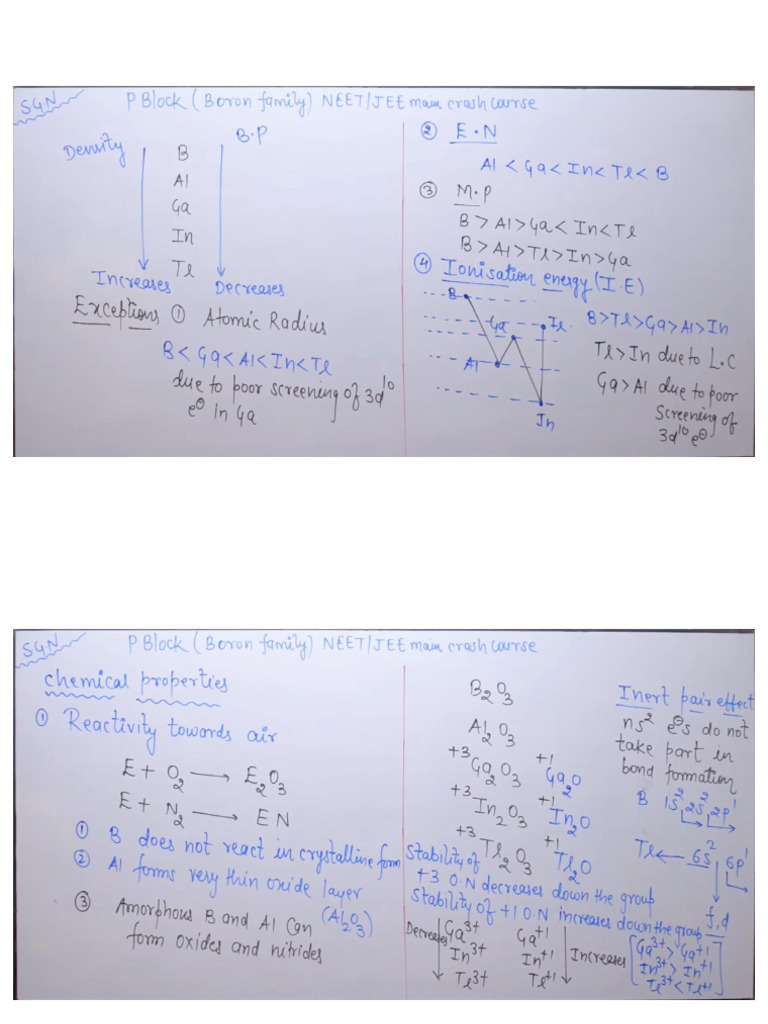 SGN
P Block (Boron family) NEET/JEE main crash course
Density
B.P
B
Al
Ga
In
Tl
Increases
Decreases
Exceptions ① Atomic Radius
B < Ga < Al < In < Tl
due to poor screening of 3d¹⁰
e⊖ in Ga
② E.N
Al < Ga < In < Tl < B
③ M.P
B > Al > Ga < In < Tl
B > Al > Tl > In > Ga
④ Ionisation energy (I.E)
B
Ga
Tl
Al
In
B > Tl > Ga > Al > In
Tl > In due to L.C
Ga > Al due to poor
screening of
3d¹⁰ e⊖
SGN
P Block (Boron family) NEET/JEE main crash course
chemical properties
① Reactivity towards air
E + O₂ → E₂O₃
E + N₂ → EN
① B does not react in crystalline form
② Al forms very thin oxide layer
(Al₂O₃)
③ Amorphous B and Al can
form oxides and nitrides
B₂O₃
Al₂O₃
+3 +1
Ga₂O₃ Ga₂O
+3 +1
In₂O₃ In₂O
+3 +1
Tl₂O₃ Tl₂O
Stability of
+3 O.N decreases down the group
Stability of +1 O.N increases down the group
Decreases
Ga³⁺ Ga⁺¹
In³⁺ In⁺¹
Tl³⁺ Tl⁺¹
Increases
Inert pair effect
ns² e⊖s do not
take part in
bond formation
B 1s² 2s² 2p¹
Tl ← 6s² 6p¹
f,d
Ga³⁺ > Ga⁺¹
In³⁺ > In⁺¹
Tl³⁺ < Tl⁺¹